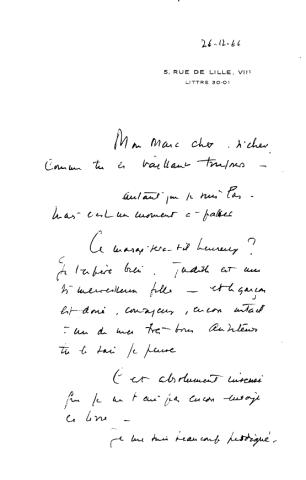 26-12-66
5, RUE DE LILLE, VIIᵉ
LITTRÉ 30-01
Mon Marc cher, si cher,
Comme tu es vaillant toujours –
autant que je suis las.
Mais c'est un moment à passer
Ce mariage sera-t-il heureux ?
Je l'espère bien. Judith est une
si merveilleuse fille – et le garçon
est doué, courageux, encore intact
: un de mes très bons auditeurs
tu le sais je pense
C'est absolument insensé
que je ne t'aie pas encore envoyé
ce livre –
Je me suis beaucoup prodigué.